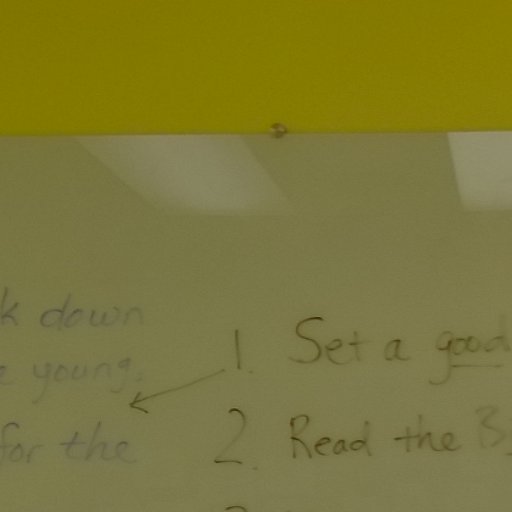 down
young,
for the
1. Set a good
2. Read the